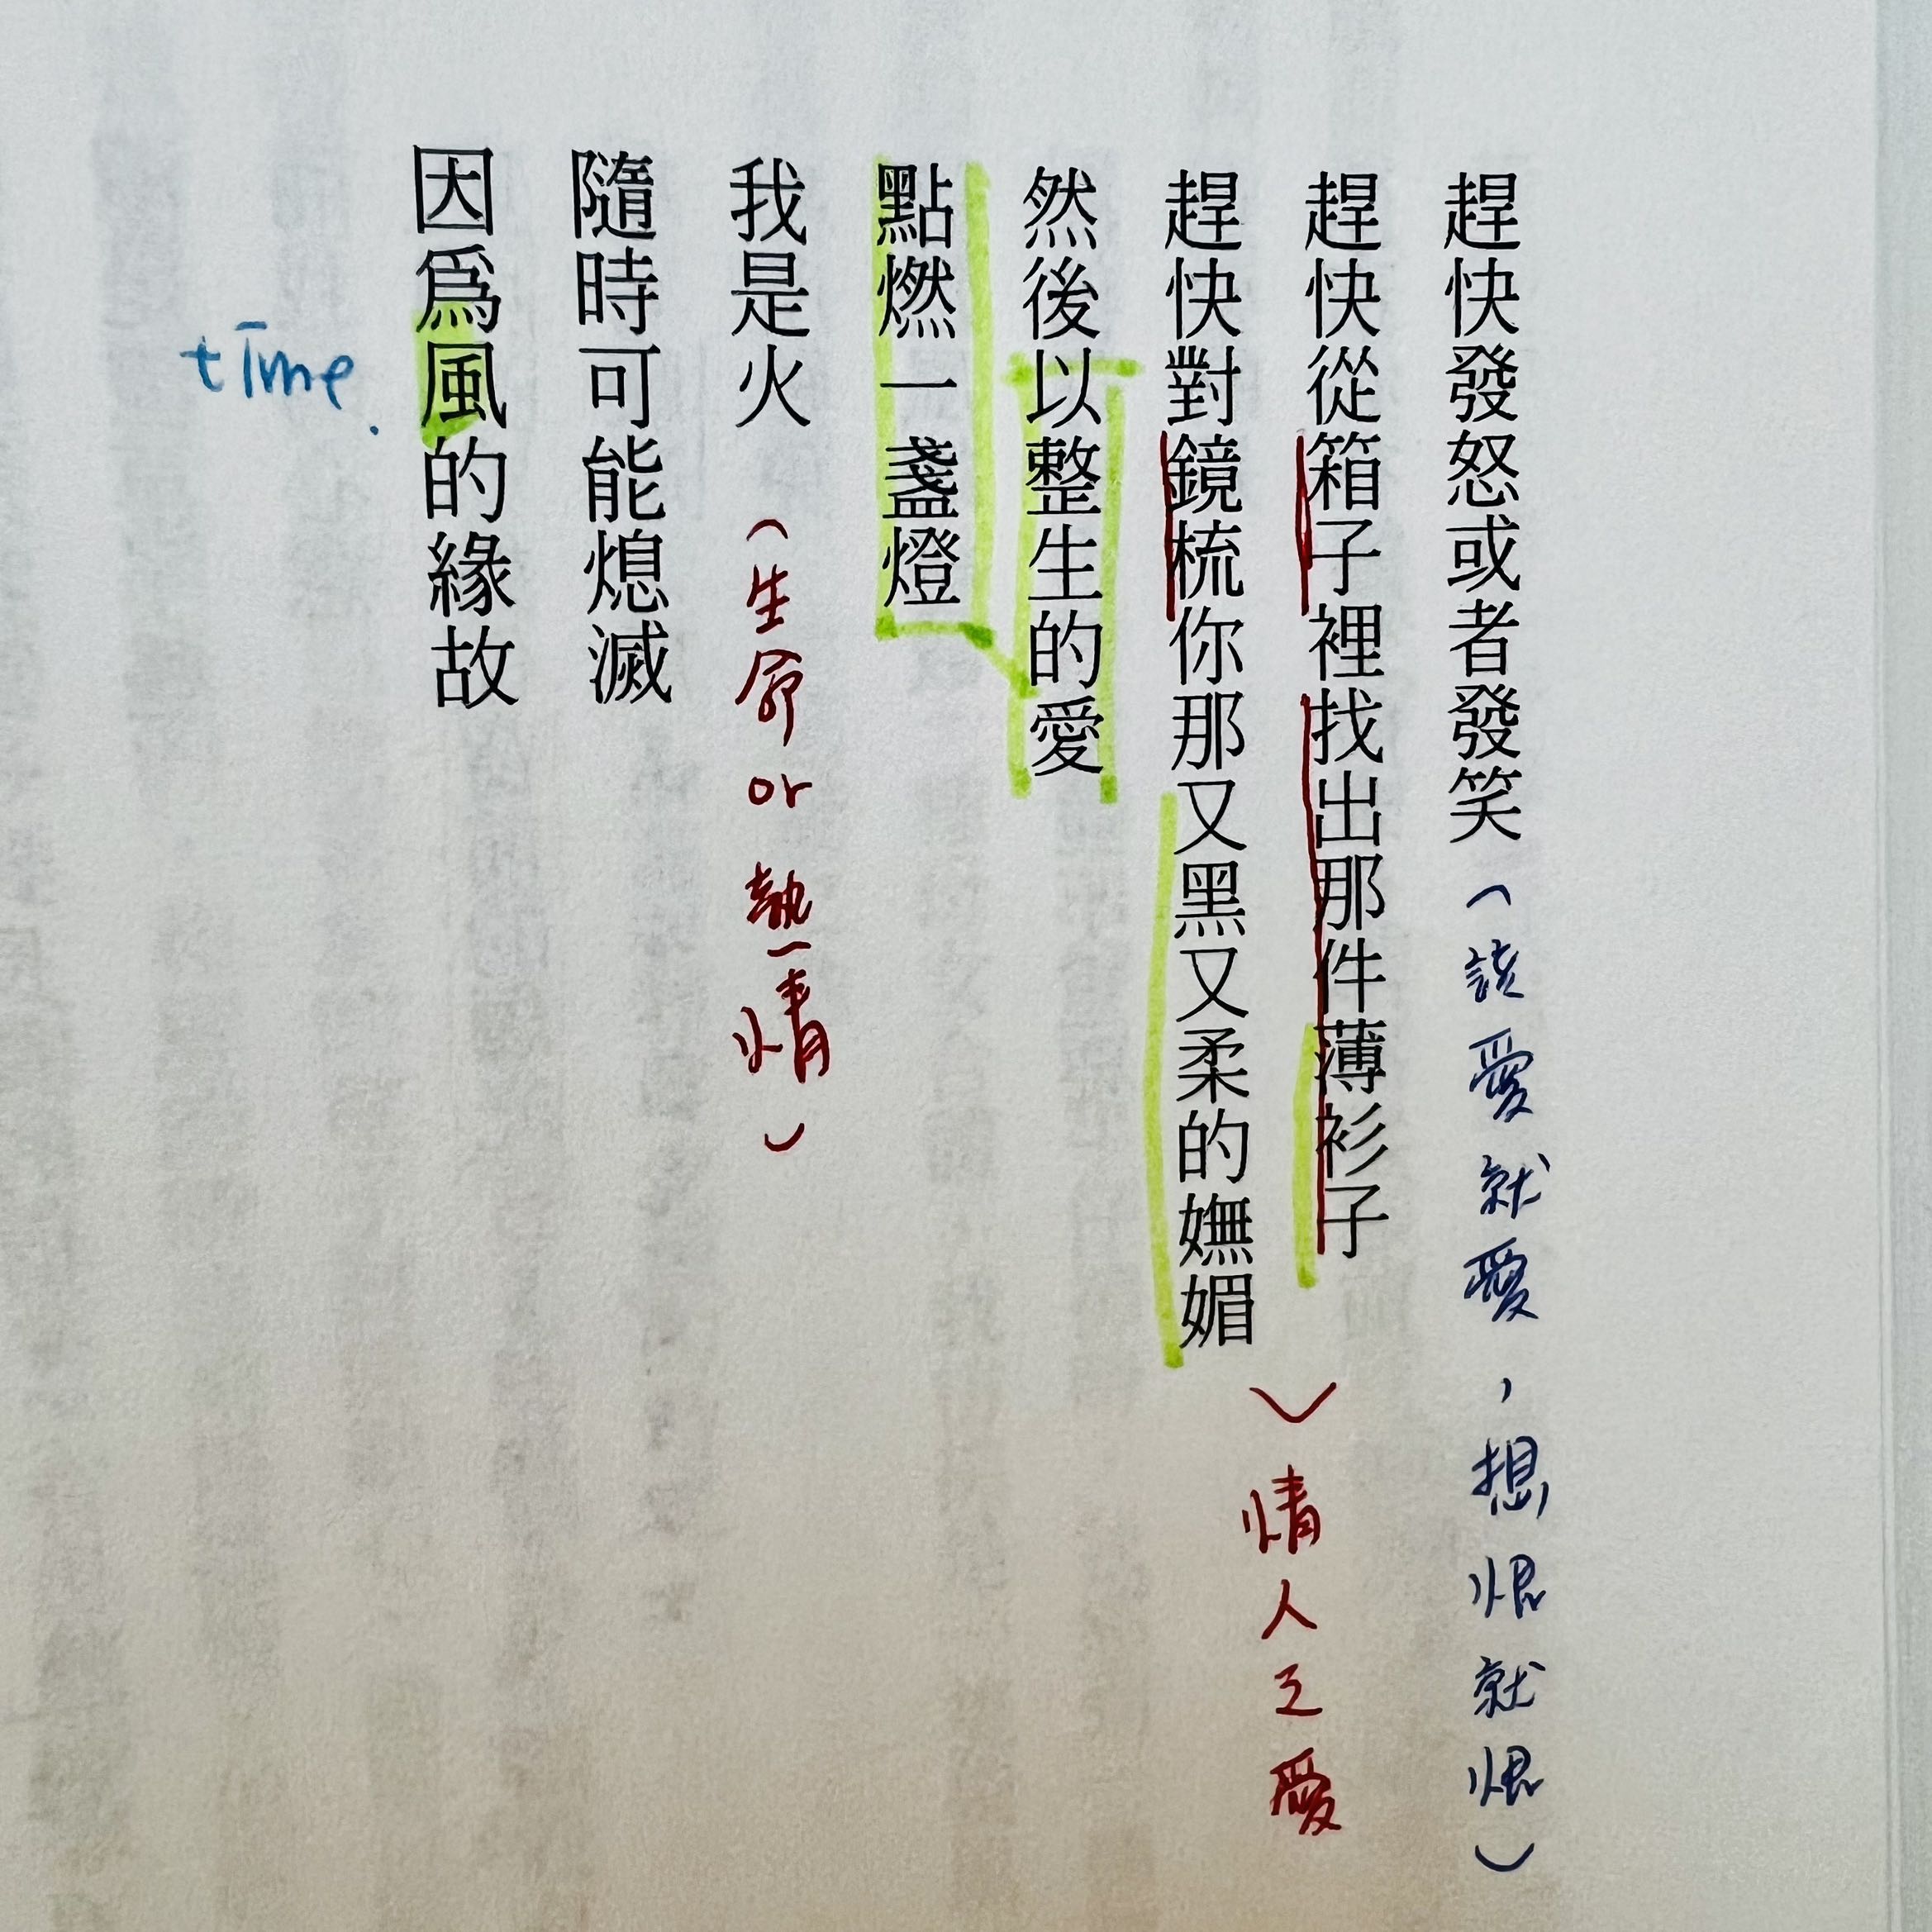 趕快發怒或者發笑（該愛就愛，想恨就恨）
趕快從箱子裡找出那件薄衫子
趕快對鏡梳你那又黑又柔的嫵媚
情人之愛
然後以整生的愛
點燃一盞燈
我是火（生命or熱情）
隨時可能熄滅
因爲風的緣故
time.